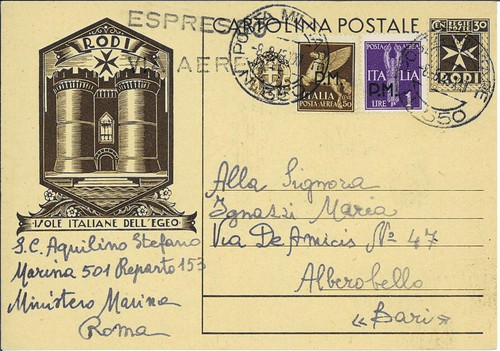 ESPRESSO
CARTOLINA POSTALE
VIA AEREA
RODI
POSTA AEREA
P.M.
ITALIA
POSTA AEREA 50
POSTA AEREA
ITALIA
P.M.
LIRE 1
CEN 30
RODI
3550
ISOLE ITALIANE DELL'EGEO
S.C. Aquilino Stefano
Marina 501 Reparto 153
Ministero Marina
Roma
Alla Signora
Ignazzi Maria
Via De Amicis No 47
Alberobello
«Bari»